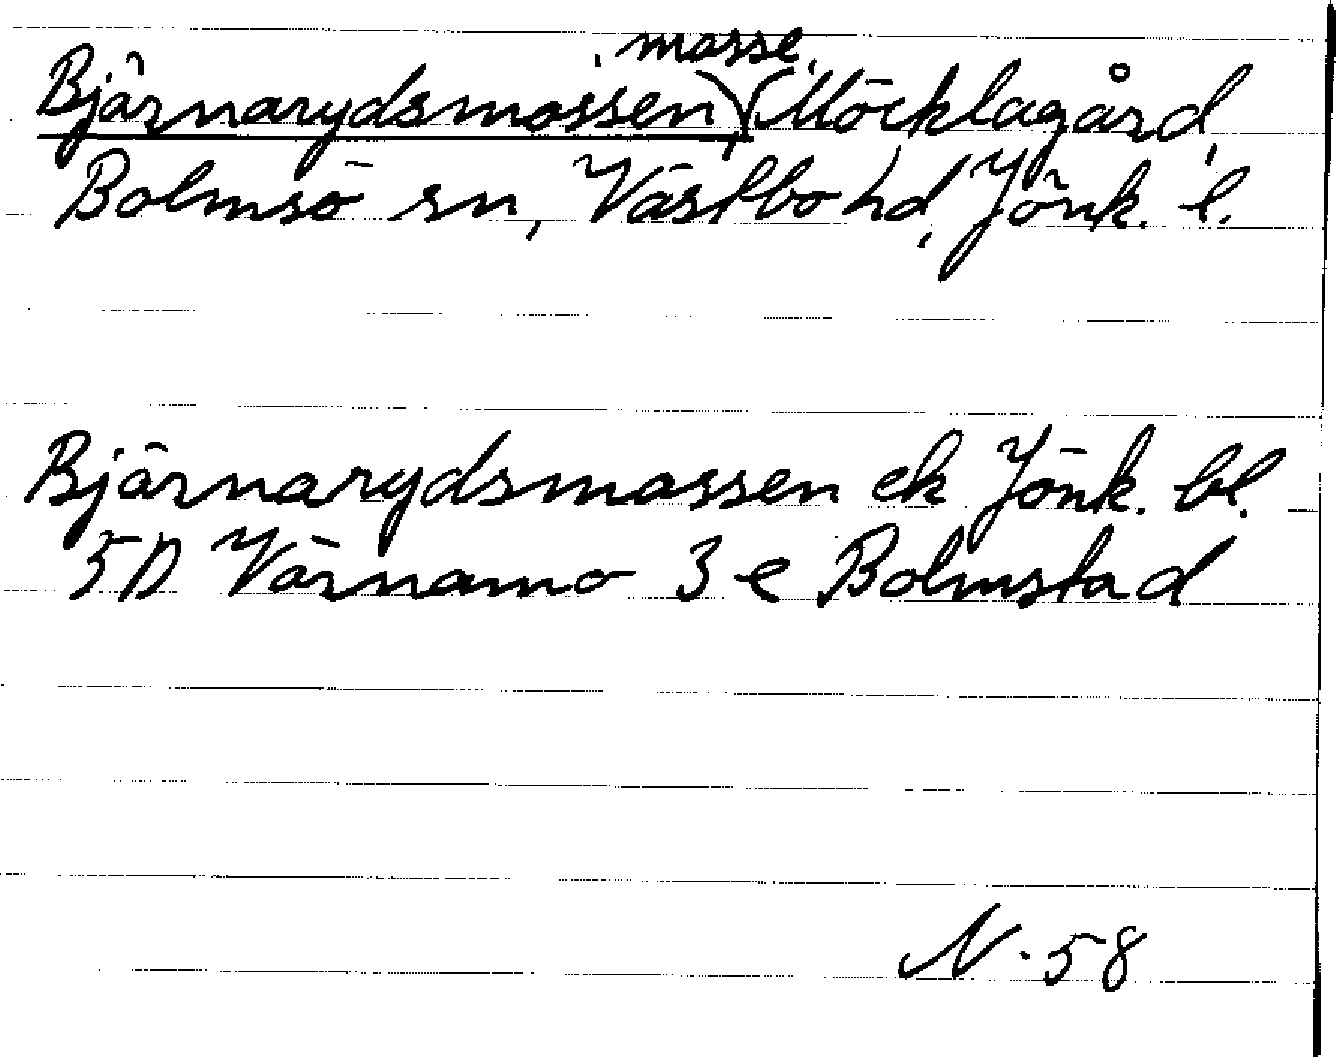 Bjärnarydsmossen, mosse, (Möcklagård,
Bolmsö sn, Västbo hd, Jönk. l.
Bjärnarydsmossen ek Jönk. bl.
5D Värnamo 3 e Bolmstad
N. 58